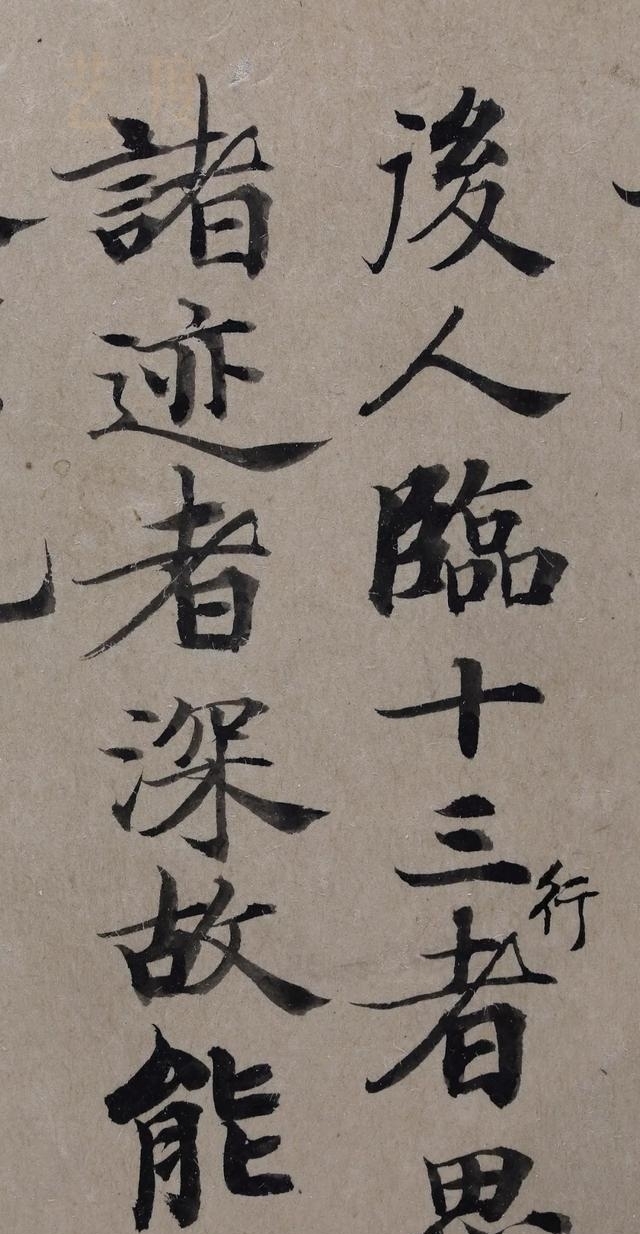 後人臨十三行者思
諸迹者深故能